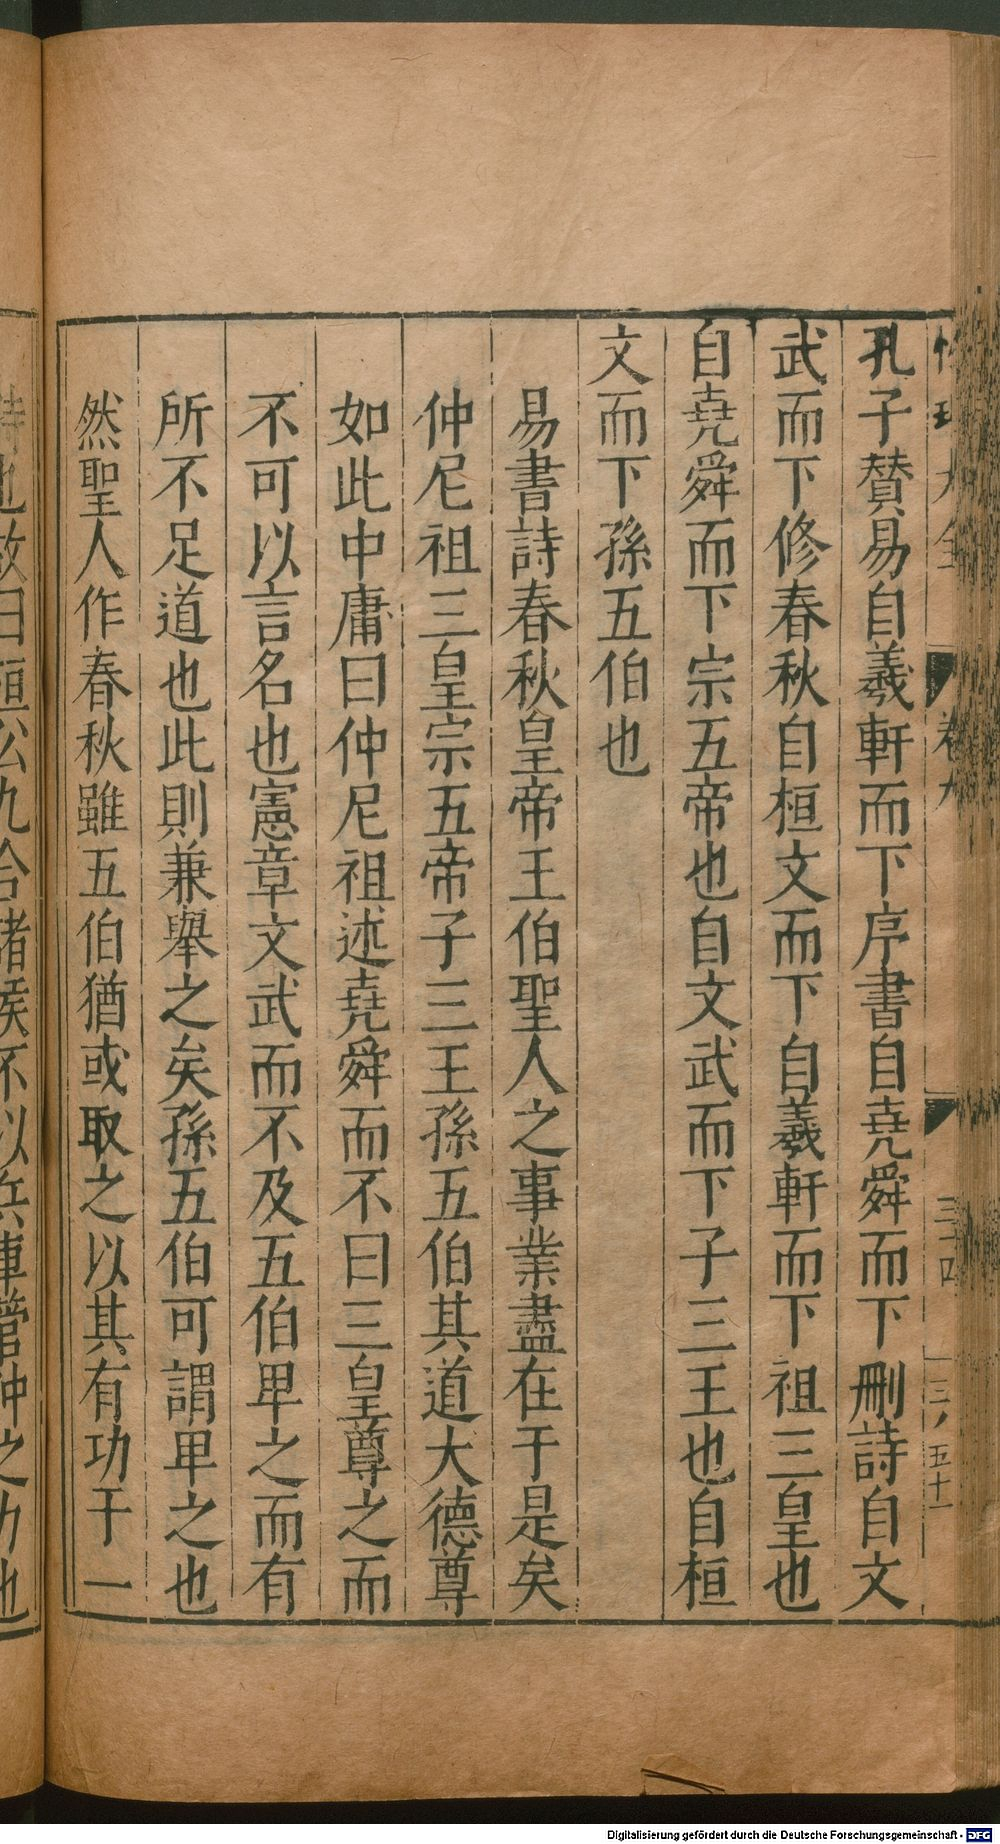 孔子賛易自羲軒而下序書自堯舜而下刪詩自文
武而下修春秋自桓文而下自羲軒而下祖三皇也
自堯舜而下宗五帝也自文武而下子三王也自桓
文而下孫五伯也
易書詩春秋皇帝王伯聖人之事業盡在于是矣
仲尼祖三皇宗五帝子三王孫五伯其道大德尊
如此中庸曰仲尼祖述堯舜而不曰三皇尊之而
不可以言名也憲章文武而不及五伯卑之而有
所不足道也此則兼舉之矣孫五伯可謂卑之也
然聖人作春秋雖五伯猶或取之以其有功于一
也故曰桓公九合諸侯不以兵車管仲之力也
卷九
三四
五十一
Digitalisierung gefördert durch die Deutsche Forschungsgemeinschaft - DFG